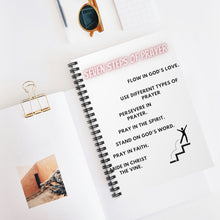 SEVEN STEPS OF PRAYER
FLOW IN GOD'S LOVE.
USE DIFFERENT TYPES OF
PRAYER
PERSEVERE IN
PRAYER.
PRAY IN THE SPIRIT.
STAND ON GOD'S WORD.
PRAY IN FAITH.
BIDE IN CHRIST
THE VINE.